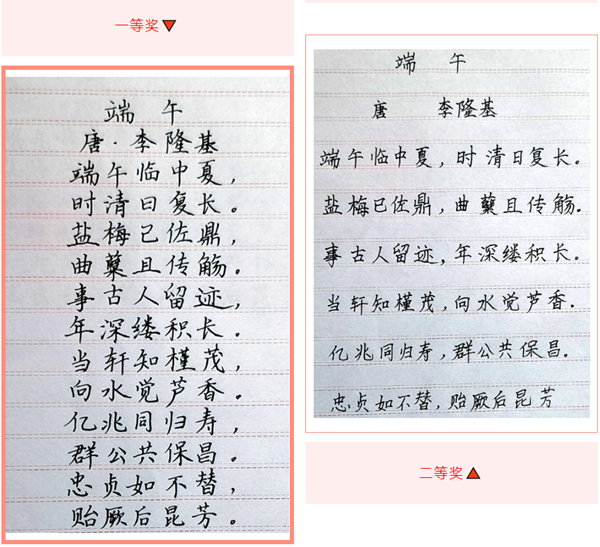 一等奖▼
端 午
唐·李隆基
端午临中夏,
时清日复长。
盐梅已佐鼎,
曲糵且传觞。
事古人留迹,
年深缕积长。
当轩知槿茂,
向水觉芦香。
亿兆同归寿,
群公共保昌。
忠贞如不替,
贻厥后昆芳。
端 午
唐 李隆基
端午临中夏,时清日复长.
盐梅已佐鼎,曲糵且传觞.
事古人留迹,年深缕积长.
当轩知槿茂,向水觉芦香.
亿兆同归寿,群公共保昌.
忠贞如不替,贻厥后昆芳
二等奖▲